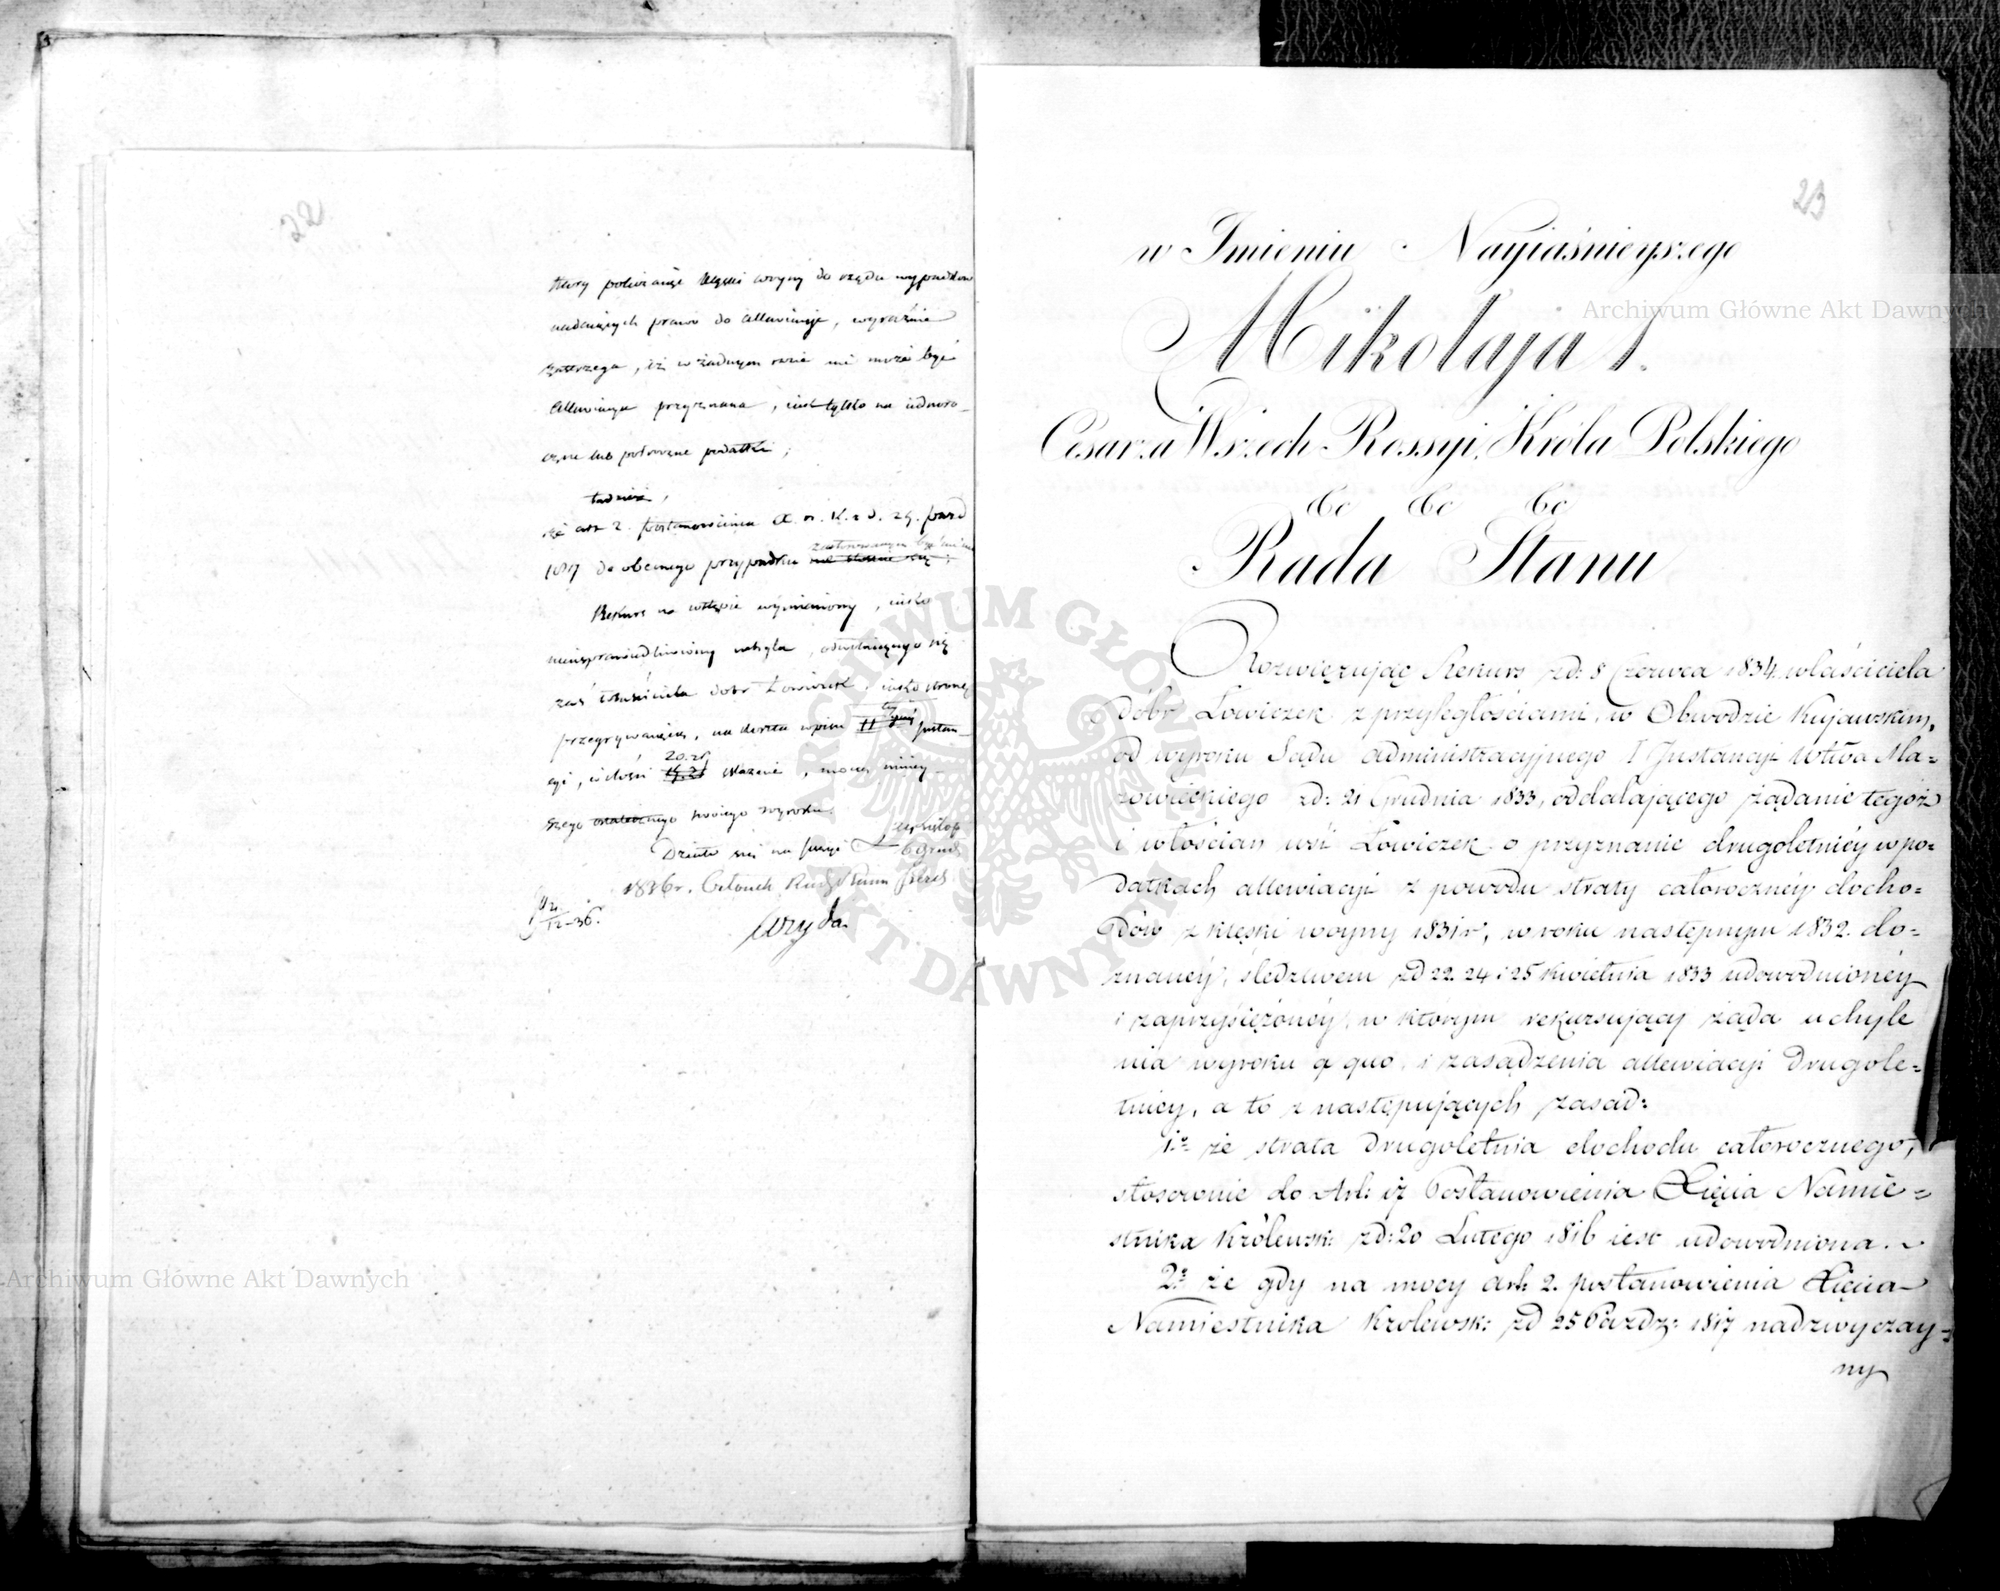 22
który polecając klęski wojny do rzędu wypadków
nadających prawo do allewiacyi, wyraźnie
zastrzega, iż w żadnym razie nie może być
allewiacya przyznana, iak tylko na iednoro-
czne lub połowę podatki;
tudzież,
że art 2. postanowienia X. N. K. z d. 25. paźd
1817 do obecnego przypadku zastosowanym być nie
Rekurs na wstępie wymieniony, iako
niesprawiedliwiony uchyla, odwołującego się
zaś właściciela dóbr Łowiczek, iako stronę
przegrywającą, na koszta wpisu II Instan-
cyi, w ilości 20. zł skazuie, mocą niniey-
szego swoiego wyroku.
Działo się na sessyi
1836 r. Członek Rady Stanu
12-36.
23
w Imieniu Nayiaśnieyszego
Mikołaja I.
Cesarza Wszech Rossyi, Króla Polskiego
&c &c &c
Rada Stanu
Rozwięzując Rekurs zd: 8 Czerwca 1834. właściciela
dóbr Łowiczek z przyległościami, w Obwodzie Kujawskim,
od wyroku Sądu administracyjnego I Instancyi Wtwa Ma=
zowieckiego zd: 21 Grudnia 1833, oddalającego żądanie tegoż
i włościan wsi Łowiczek o przyznanie drugoletniéy w po=
datkach allewiacyi z powodu straty całorocznéy docho=
dów z klęski woyny 1831 r, w roku następnym 1832. do=
znanéy, śledztwem zd 22. 24 i 25 Kwietnia 1833 udowodnionéy
i zaprzysiężonéy, w którym rekursujący żąda uchyle
nia wyroku a quo, i zasądzenia allewiacyi drugole=
tniey, a to z następujących zasad:
1.º że strata drugoletnia dochodu całorocznego,
stosownie do Art: 17 Postanowienia Xięcia Namie=
stnika Królewsk: zd: 20 Lutego 1816 iest udowodniona.
2.º że gdy na mocy art. 2. postanowienia Xięcia
Namiestnika Krolewsk: zd 25 Paźdz: 1817 nadzwyczay=
ny
Archiwum Główne Akt Dawnych
Archiwum Główne Akt Dawnych
ARCHIWUM GŁÓWNE AKT DAWNYCH